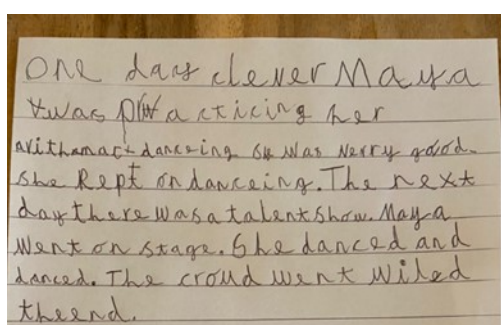 One day clever Maya
was practicing her
arithamact danceing su was verry good.
She kept on danceing. The next
day there was a talent show. Maya
went on stage. She danced and
danced. The croud went wiled
the end.